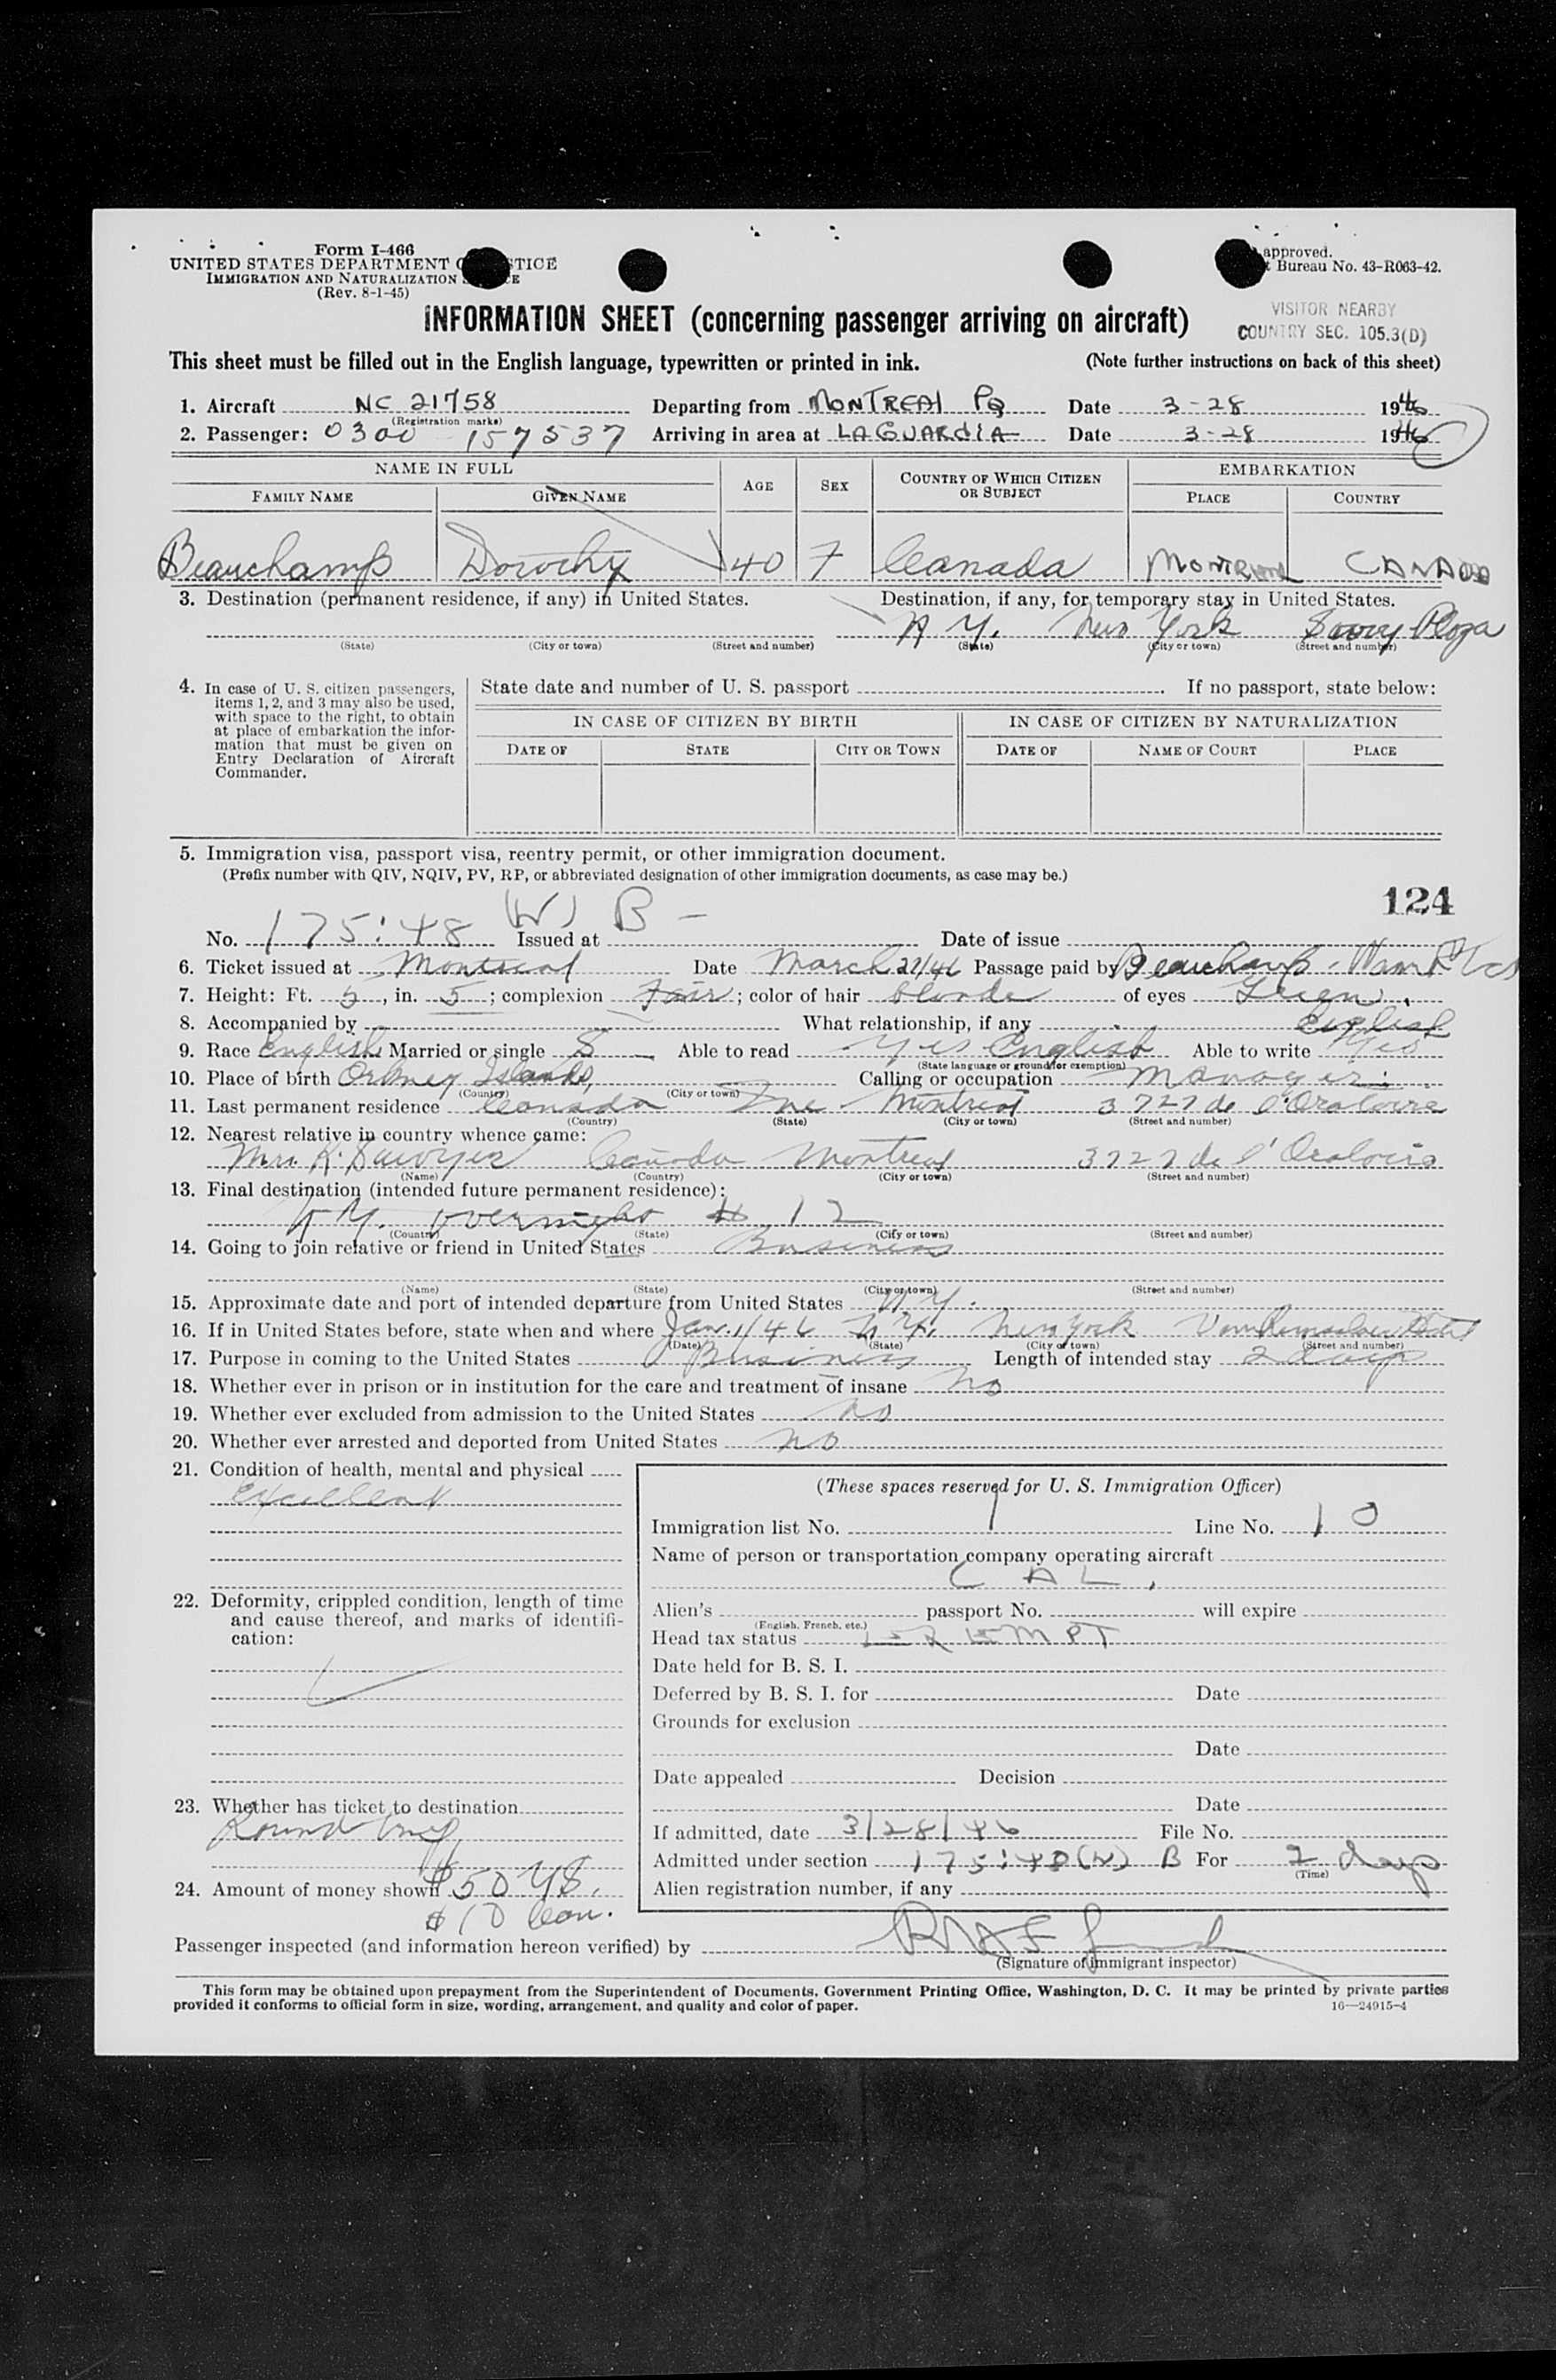 Form I-466
UNITED STATES DEPARTMENT TICE
IMMIGRATION AND NATURALIZATION
(Rev. 8-1-45)
approved.
Bureau No. 43-R063-42.
INFORMATION SHEET (concerning passenger arriving on aircraft)
VISITOR NEARBY
COUNTRY SEC. 105.3(D)
This sheet must be filled out in the English language, typewritten or printed in ink. (Note further instructions on back of this sheet)
1. Aircraft NC 21758 Departing from MONTREAL PQ Date 3-28 1946
(Registration marks)
2. Passenger: 0300 - 157537 Arriving in area at LAGUARDIA Date 3-28 1946
NAME IN FULL AGE SEX COUNTRY OF WHICH CITIZEN OR SUBJECT EMBARKATION
FAMILY NAME GIVEN NAME PLACE COUNTRY
Beauchamp Dorothy 40 F Canada MONTREAL CANADA
3. Destination (permanent residence, if any) in United States. Destination, if any, for temporary stay in United States.
N.Y. New York Savoy Plaza
(State) (City or town) (Street and number) (State) (City or town) (Street and number)
4. In case of U. S. citizen passengers, items 1, 2, and 3 may also be used, with space to the right, to obtain at place of embarkation the information that must be given on Entry Declaration of Aircraft Commander.
State date and number of U. S. passport . If no passport, state below:
IN CASE OF CITIZEN BY BIRTH IN CASE OF CITIZEN BY NATURALIZATION
DATE OF STATE CITY OR TOWN DATE OF NAME OF COURT PLACE
5. Immigration visa, passport visa, reentry permit, or other immigration document.
(Prefix number with QIV, NQIV, PV, RP, or abbreviated designation of other immigration documents, as case may be.)
124
No. 175:48 (W) B - Issued at Date of issue
6. Ticket issued at Montreal Date March 27/46 Passage paid by Beauchamp
7. Height: Ft. 5, in. 5; complexion Fair; color of hair blonde of eyes Green
8. Accompanied by What relationship, if any
English
9. Race English Married or single S Able to read Yes English Able to write Yes
(State language or ground for exemption)
10. Place of birth Orkney Islands, Calling or occupation Manager
(Country) (City or town)
11. Last permanent residence Canada Montreal 3727 de l'Oratoire
(Country) (State) (City or town) (Street and number)
12. Nearest relative in country whence came:
Mrs. K. Sawyer Canada Montreal 3727 de l'Oratoire
(Name) (Country) (City or town) (Street and number)
13. Final destination (intended future permanent residence):
N.Y. overnight # 12
(Country) (State) (City or town) (Street and number)
14. Going to join relative or friend in United States Business
(Name) (State) (City or town) (Street and number)
15. Approximate date and port of intended departure from United States N.Y.
16. If in United States before, state when and where Jan. 1/46 N.Y. New York Hotel
(Date) (State) (City or town) (Street and number)
17. Purpose in coming to the United States Business Length of intended stay 2 days
18. Whether ever in prison or in institution for the care and treatment of insane No
19. Whether ever excluded from admission to the United States no
20. Whether ever arrested and deported from United States no
21. Condition of health, mental and physical
Excellent
(These spaces reserved for U. S. Immigration Officer)
Immigration list No. 1 Line No. 10
Name of person or transportation company operating aircraft
C A L .
22. Deformity, crippled condition, length of time and cause thereof, and marks of identification:
Alien's passport No. will expire
(English, French, etc.)
Head tax status EXEMPT
Date held for B. S. I.
Deferred by B. S. I. for Date
Grounds for exclusion
Date
Date appealed Decision
23. Whether has ticket to destination
Round trip
Date
If admitted, date 3/28/46 File No.
Admitted under section 175:48(W) B For 2 days
(Time)
24. Amount of money shown $50 US.
$10 Can.
Alien registration number, if any
Passenger inspected (and information hereon verified) by
(Signature of immigrant inspector)
This form may be obtained upon prepayment from the Superintendent of Documents, Government Printing Office, Washington, D. C. It may be printed by private parties
provided it conforms to official form in size, wording, arrangement, and quality and color of paper. 16—24915-4